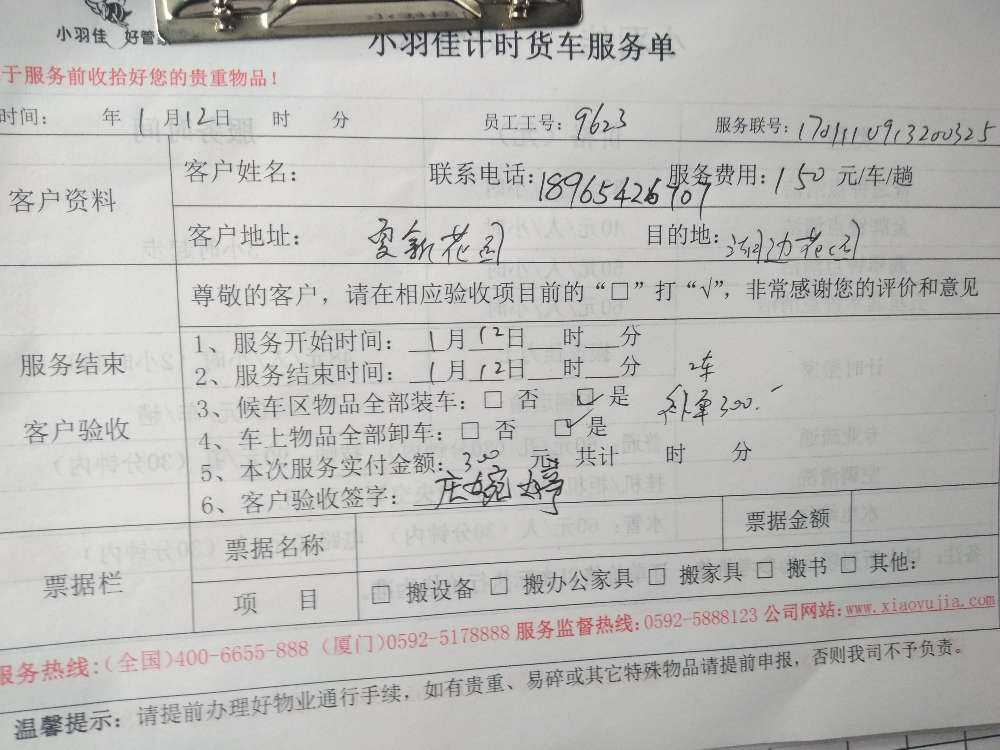 小羽佳 好管家
小羽佳计时货车服务单
于服务前收拾好您的贵重物品！
时间： 年 1 月 12 日 时 分 员工工号：9623 服务联号：1701110913200325
客户资料
客户姓名： 联系电话：18965426707 服务费用：150 元/车/趟
客户地址：夏新花园 目的地：湖边花园
服务结束
客户验收
尊敬的客户，请在相应验收项目前的“□”打“√”，非常感谢您的评价和意见
1、服务开始时间：1月12日 时 分
2、服务结束时间：1月12日 时 分 2车
3、候车区物品全部装车：□ 否 ☑ 是 300.
4、车上物品全部卸车：□ 否 ☑ 是
5、本次服务实付金额：300 元 共计 时 分
6、客户验收签字：庄婉婷
票据栏
票据名称 票据金额
项 目 □ 搬设备 □ 搬办公家具 □ 搬家具 □ 搬书 □ 其他：
服务热线：(全国)400-6655-888 (厦门)0592-5178888 服务监督热线：0592-5888123 公司网站：www.xiaoyujia.com
温馨提示：请提前办理好物业通行手续，如有贵重、易碎或其它特殊物品请提前申报，否则我司不予负责。